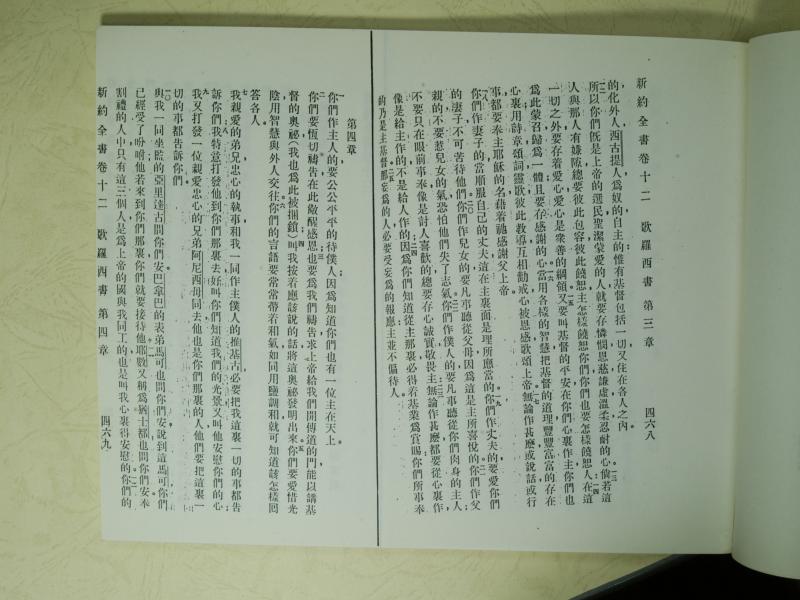 新約全書卷十二 歌羅西書 第三章 四六八
的化外人西古提人爲奴的自主的惟有基督包括一切又住在各人之內
所以你們旣是上帝的選民聖潔蒙愛的人就要存憐憫恩慈謙虛溫柔忍耐的心倘若這
人與那人有嫌隙總要彼此包容彼此饒恕主怎樣饒恕你們你們也要怎樣饒恕人在這
一切之外要存着愛心愛心是衆善的綱領又要叫基督的平安在你們心裏作主你們也
爲此蒙召歸爲一體且要存感謝的心當用各樣的智慧把基督的道理豐豐富富的存在
心裏用詩章頌詞靈歌彼此教導互相勸戒心被恩感歌頌上帝無論作甚麽或說話或行
事都要奉主耶穌的名藉着祂感謝父上帝
你們作妻子的當順服自己的丈夫這在主裏面是理所應當的你們作丈夫的要愛你們
的妻子不可苦待他們你們作兒女的要凡事聽從父母因爲這是主所喜悅的你們作父
親的不要惹兒女的氣恐怕他們失了志氣你們作僕人的要凡事聽從你們肉身的主人
不要只在眼前事奉像是討人喜歡的總要存心誠實敬畏主無論作甚麽都要從心裏作
像是給主作的不是給人作的因爲你們知道從主那裏必得着基業爲賞賜你們所事奉
的乃是主基督那妄爲的人必要受妄爲的報應主並不偏待人
第四章
你們作主人的要公公平平的待僕人因爲知道你們也有一位主在天上
你們要恆切禱告在此儆醒感恩也要爲我們禱告求上帝給我們開傳道的門能以講基
督的奧祕(我也爲此被捆鎖)叫我按着應該說的話將這奧祕發明出來你們要愛惜光
陰用智慧與外人交往你們的言語要常常帶着和氣如同用鹽調和就可知道該怎樣回
答各人
我親愛的弟兄忠心的執事和我一同作主僕人的推基古必要把我這裏一切的事都告
訴你們我特意打發他到你們那裏去好叫你們知道我們的光景又叫他安慰你們的心
我又打發一位親愛忠心的兄弟阿尼西母同去他也是你們那裏的人他們要把這裏一
切的事都告訴你們
與我一同坐監的亞里達古問你們安巴拿巴的表弟馬可也問你們安說到這馬可你們
已經受了吩咐他若來到你們那裏你們就要接待他耶數又稱爲猶士都也問你們安奉
割禮的人中只有這三個人是爲上帝的國與我同工的也是叫我心裏得安慰的你們的
新約全書卷十二 歌羅西書 第四章 四六九